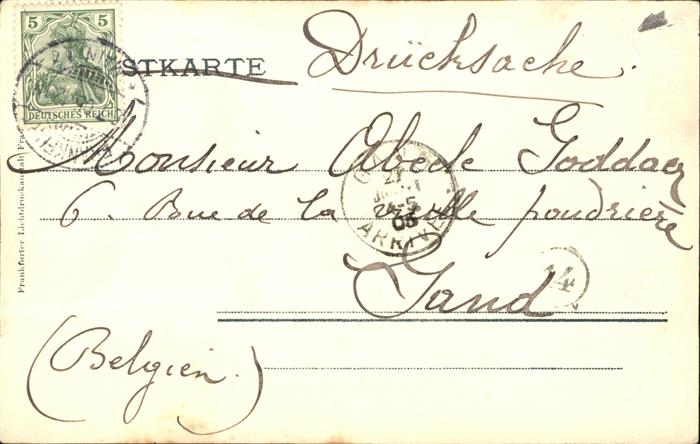 5 5
DEUTSCHES REICH
STKARTE
Drücksache.
Monsieur Abede Goddaer
6. Rue de la vieille poudrière
Gand
14
(Belgien.)
ARRIVÉE
Frankfurter Lichtdruckanstalt